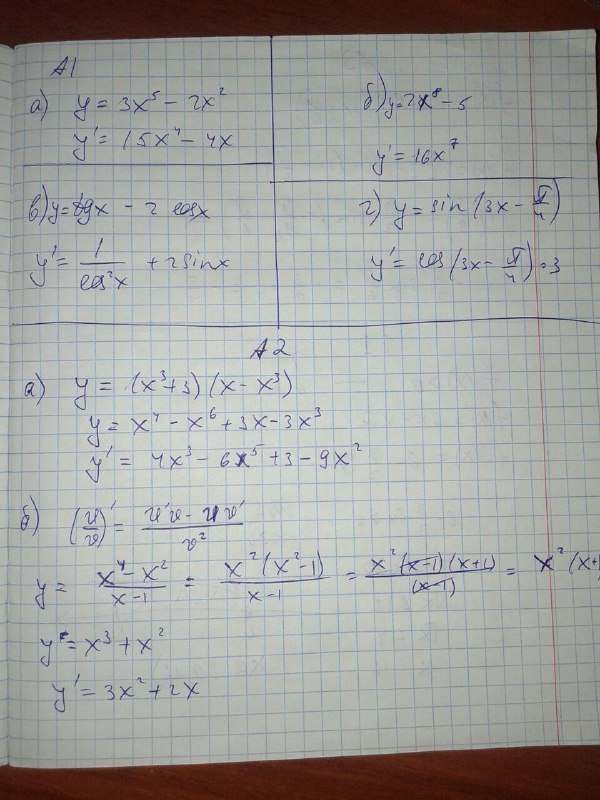 А1
а) y = 3x⁵ − 2x²
y' = 15x⁴ − 4x
б) y = 2x⁸ − 5
y' = 16x⁷
в) y = tgx − 2 cosx
y' = 1/cos²x + 2sinx
г) y = sin(3x − π/4)
y' = cos(3x − π/4) · 3
А2
а) y = (x³+3)(x − x³)
y = x⁴ − x⁶ + 3x − 3x³
y' = 4x³ − 6x⁵ + 3 − 9x²
б) (u/v)' = (u'v − uv')/v²
y = (x⁴ − x²)/(x−1) = x²(x²−1)/(x−1) = x²(x−1)(x+1)/(x−1) = x²(x+
y = x³ + x²
y' = 3x² + 2x